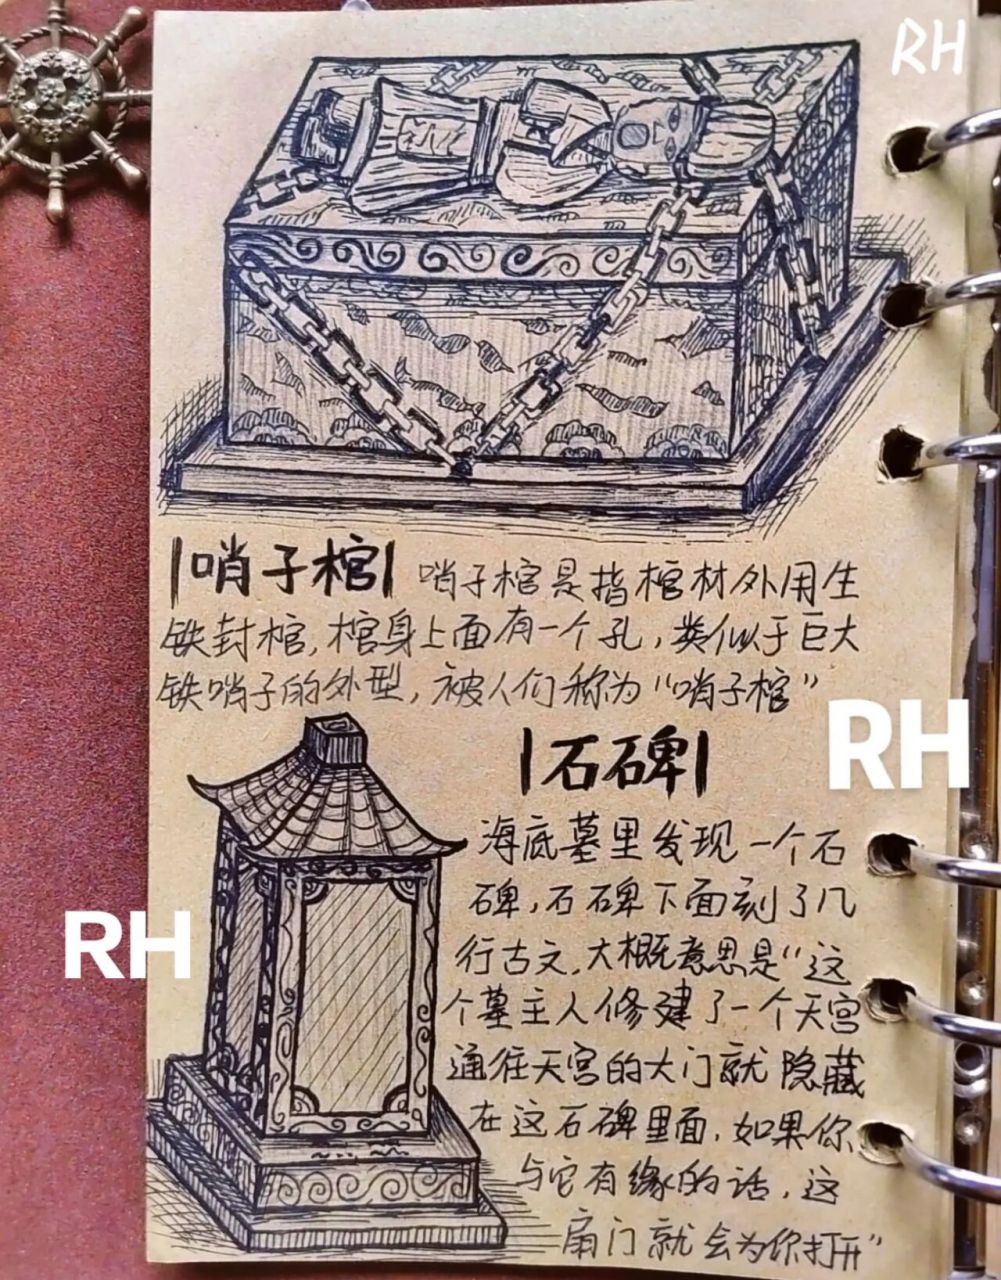 RH
|哨子棺| 哨子棺是指棺材外用生
铁封棺,棺身上面有一个孔,类似于巨大
铁哨子的外型,被人们称为“哨子棺”
RH
|石碑|
海底墓里发现一个石
碑,石碑下面刻了几
行古文,大概意思是“这
RH
个墓主人修建了一个天宫
通往天宫的大门就隐藏
在这石碑里面,如果你
与它有缘的话,这
扇门就会为你打开”